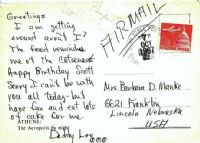 Greetings
I am getting
around aren't I?
The food reminds
me of the
Happy Birthday Scott
Sorry I can't be with
you all today - but
have fun and eat lots
of cake for me
ATHENS:
The Acropolis by night
Daddy Lee
AIRMAIL
OCT
Mrs Barbara D. Manke
6621 Franklin
Lincoln Nebraska
USA